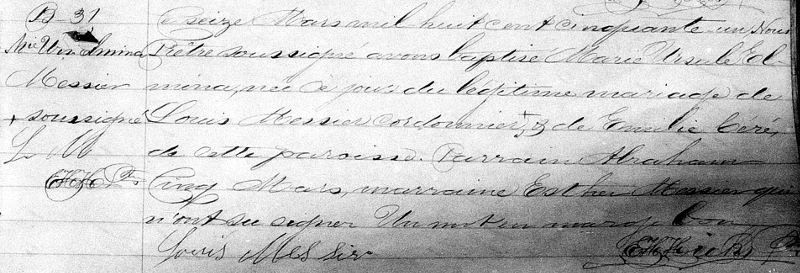 B 31
Messier
soussigné
L M
Le seize Mars mil huit cent cinquante-un Nous
Prêtre soussigné avons baptisé Marie Ursule El-
mina, née ce jour du légitime mariage de
Louis Messier cordonnier, & de Emilie Céré,
de cette paroisse. Parrain Abraham
Cinq Mars, marraine Esther Messier qui
n'ont su signer Un mot en marge bon
Louis Messier